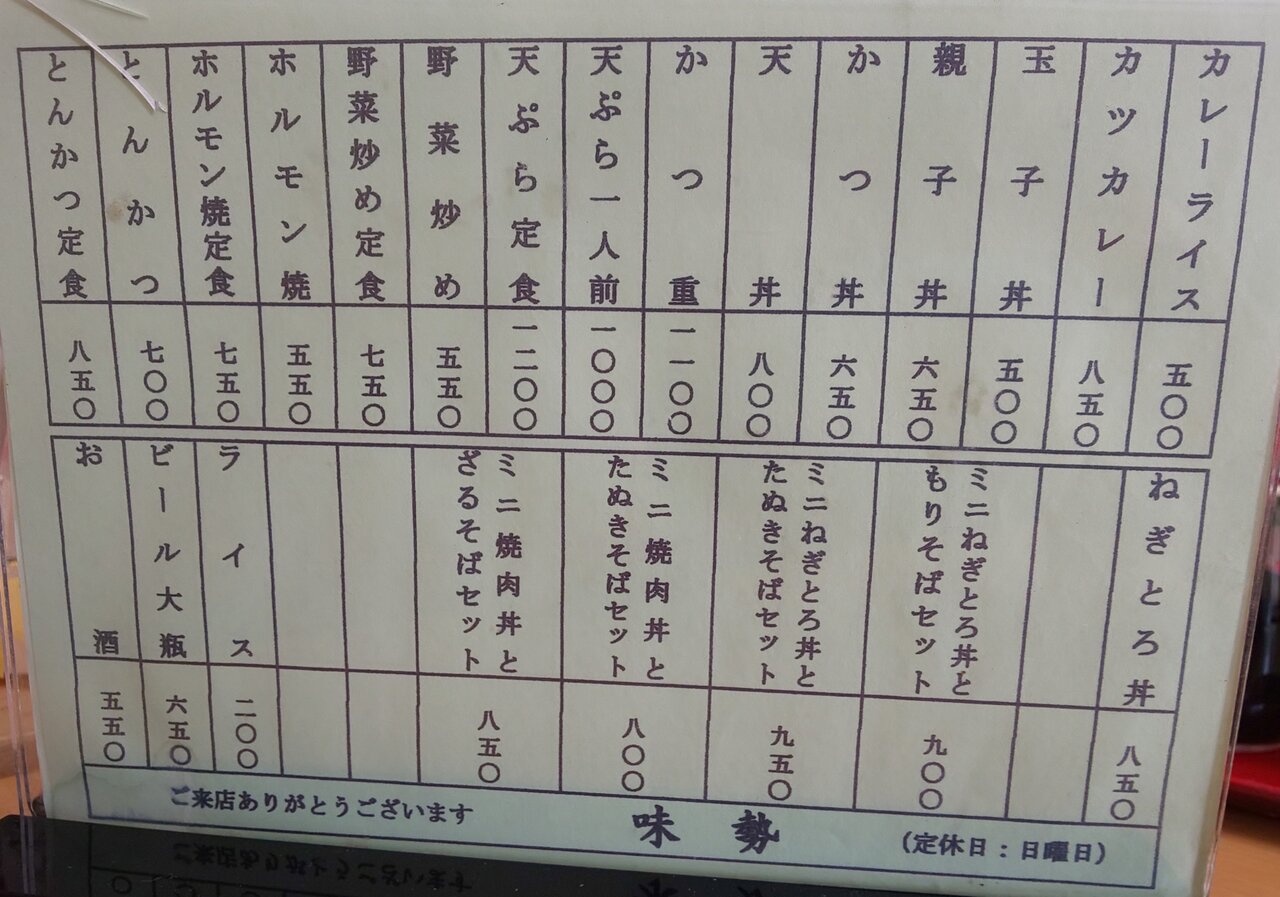 カレーライス 五〇〇
カツカレー 八五〇
玉子丼 五〇〇
親子丼 六五〇
かつ丼 六五〇
天丼 八〇〇
かつ重 一一〇〇
天ぷら一人前 一〇〇〇
天ぷら定食 一二〇〇
野菜炒め 五五〇
野菜炒め定食 七五〇
ホルモン焼 五五〇
ホルモン焼定食 七五〇
とんかつ 七〇〇
とんかつ定食 八五〇
ねぎとろ丼 八五〇
ミニねぎとろ丼と
もりそばセット 九〇〇
ミニねぎとろ丼と
たぬきそばセット 九五〇
ミニ焼肉丼と
たぬきそばセット 八〇〇
ミニ焼肉丼と
ざるそばセット 八五〇
ライス 二〇〇
ビール大瓶 六五〇
お酒 五五〇
ご来店ありがとうございます 味勢 (定休日：日曜日)